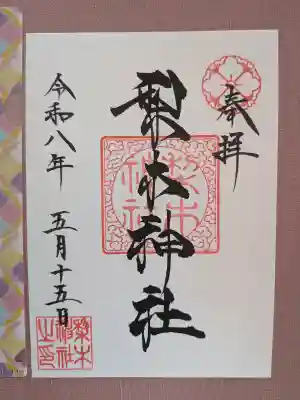 奉拝
梨木神社
令和八年 五月十五日
梨木神社之印